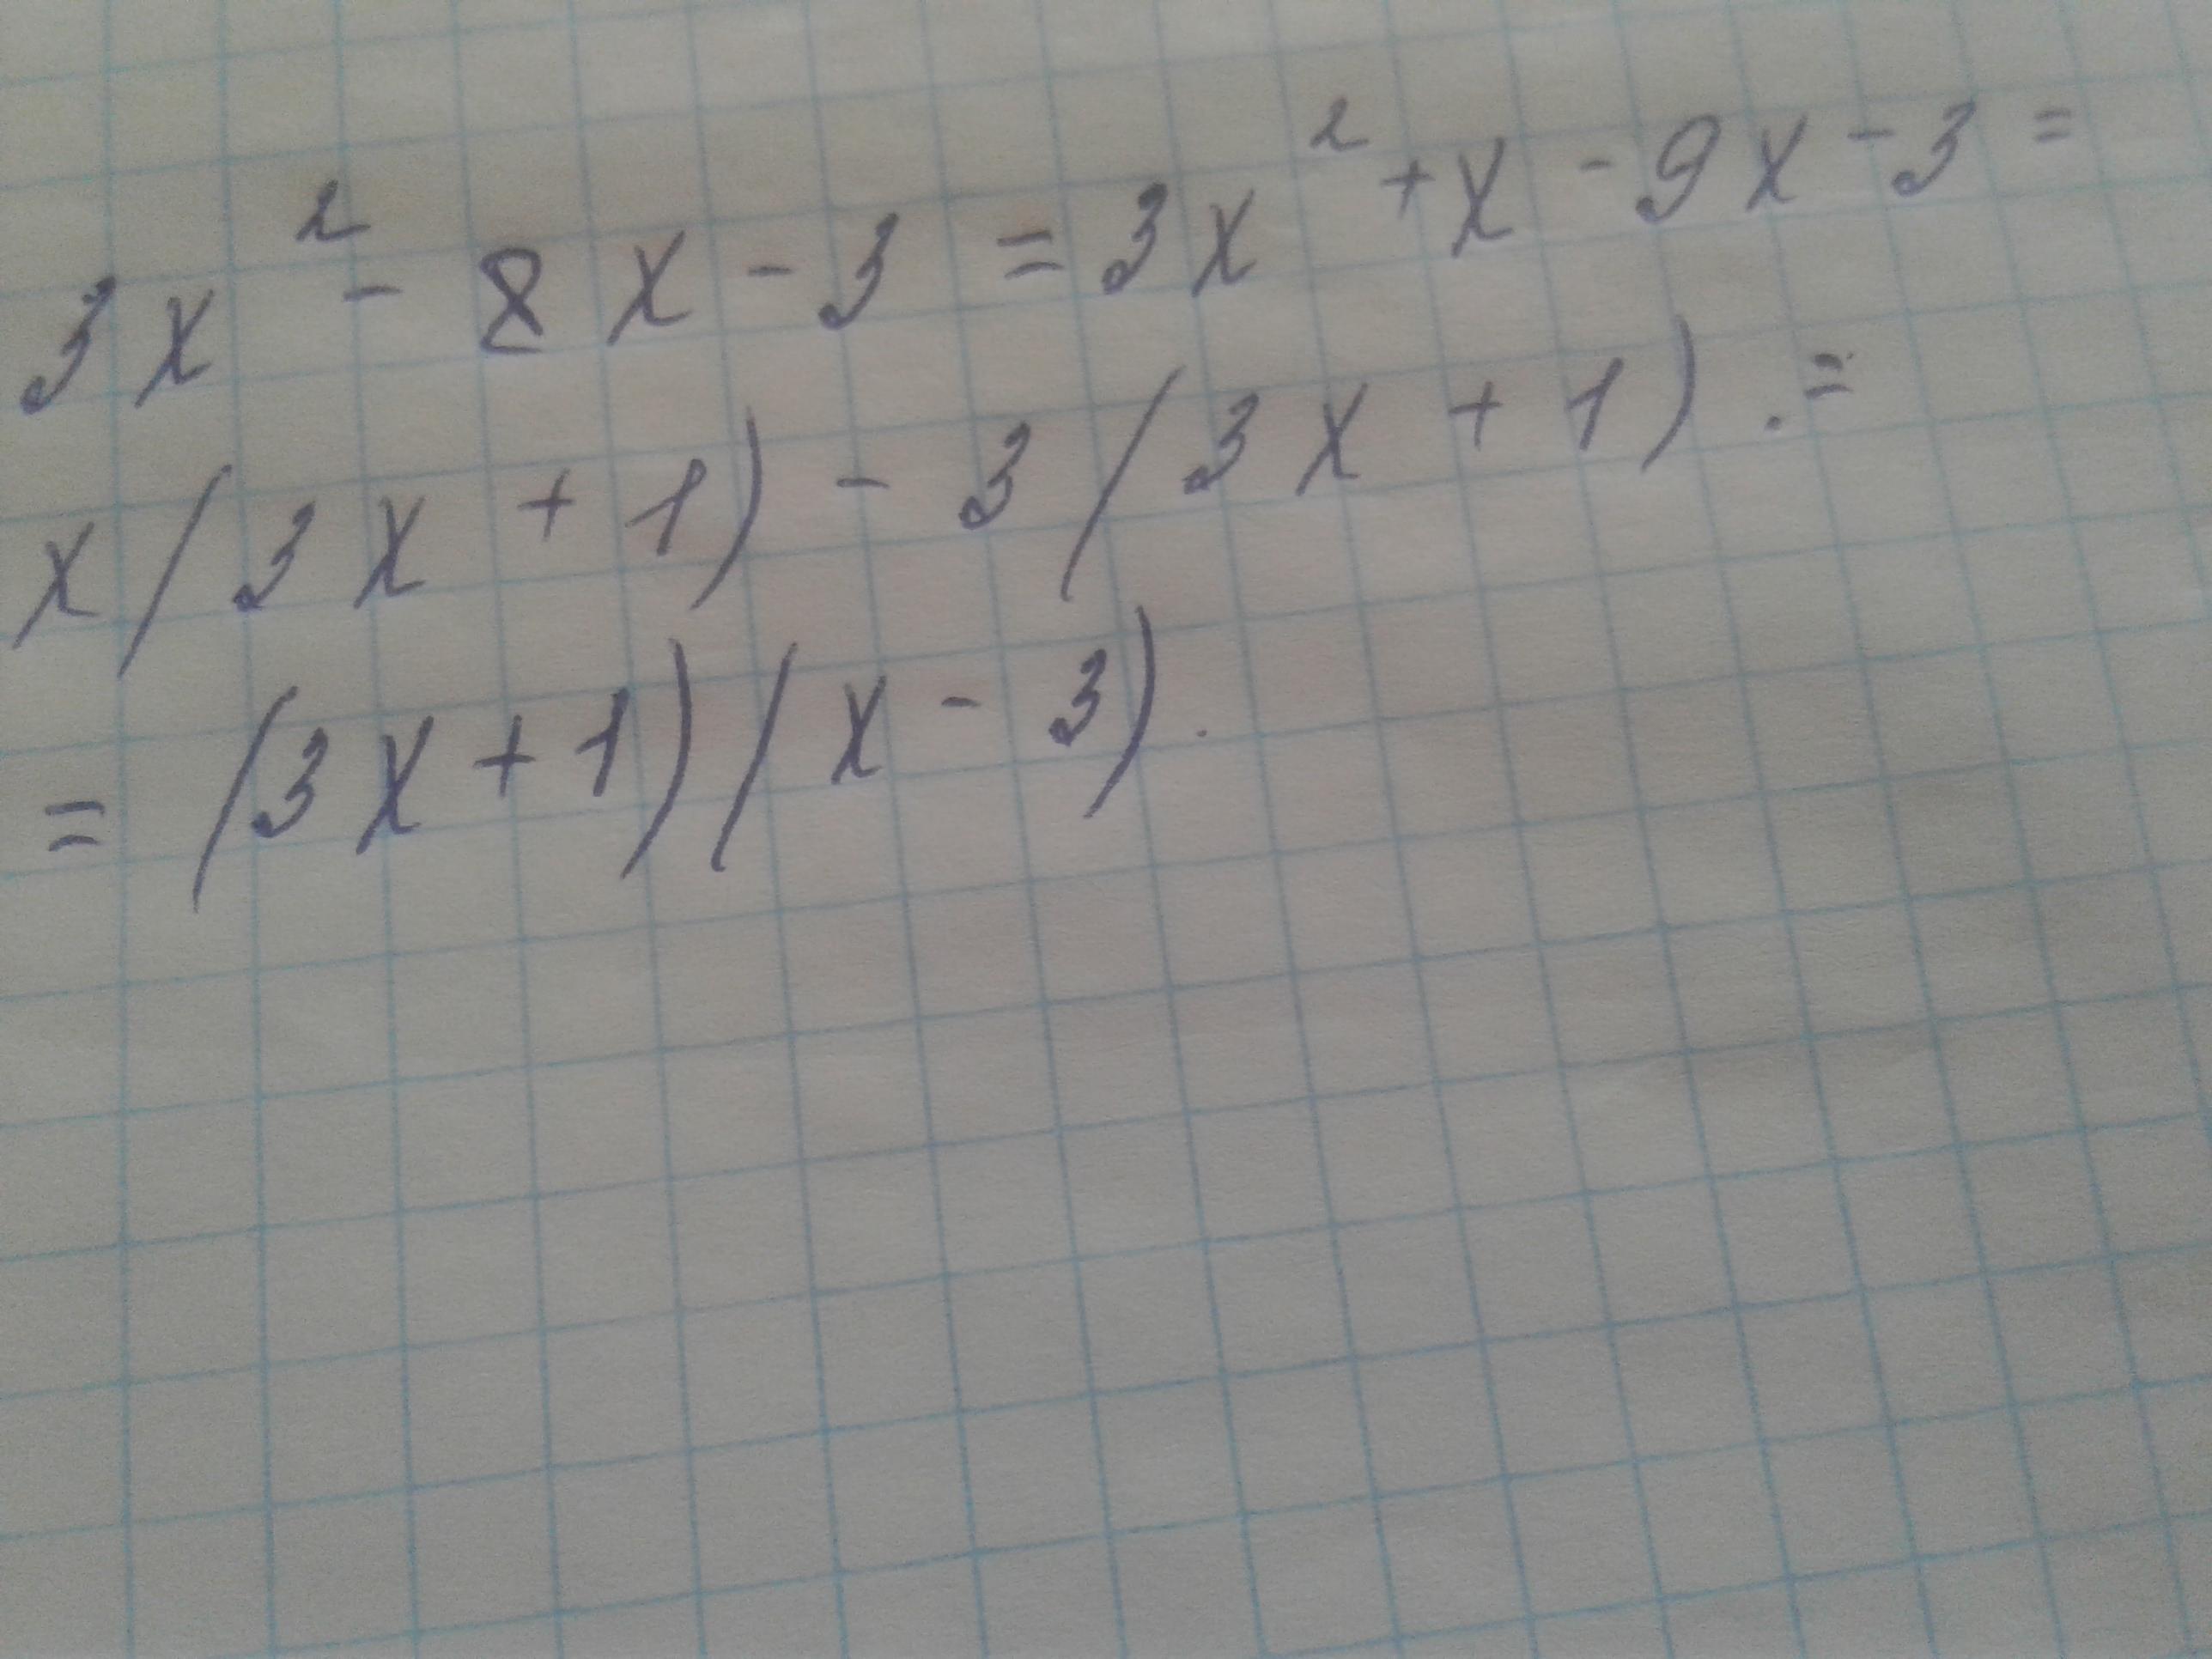 3x² - 8x - 3 = 3x² + x - 9x - 3 =
x(3x + 1) - 3(3x + 1). =
= (3x + 1)(x - 3).